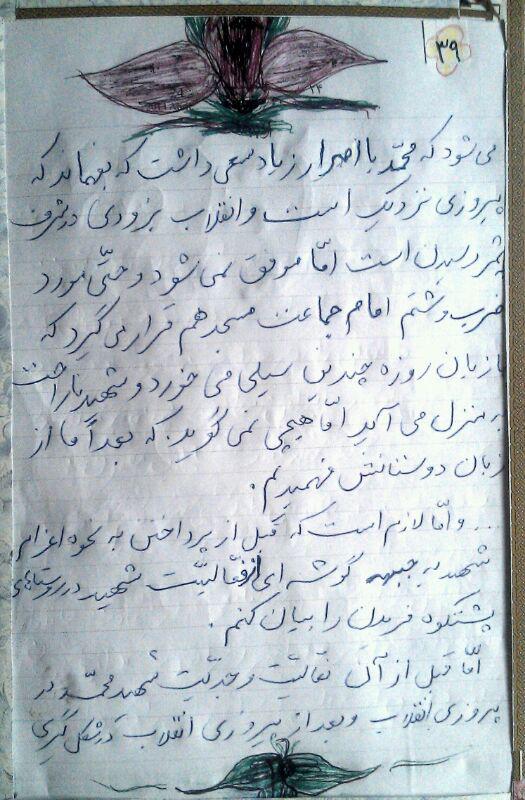 ۳۹
می شود که محمّد با اصرار زیاد سعی داشت که بفهماند که
پیروزی نزدیک است و انقلاب بزودی در شرف
ثمر رسیدن است امّا موفق نمی شود و حتّی مورد
ضرب و شتم امام جماعت مسجد هم قرار می گیرد که
با زبان روزه چندین سیلی می خورد و شهید ناراحت
به منزل می آید امّا هیچی نمی گوید. که بعداً ما از
زبان دوستانش فهمیدیم.
... و امّا لازم است که قبل از پرداختن به نحوه اعزام
شهید به جبهه گوشه ای از فعّالیّت شهید در روستاهای
پشتکوه فریدن را بیان کنم.
امّا قبل از آن فعالیّت و جدیّت شهید محمّد در
پیروزی انقلاب و بعد از پیروزی انقلاب در شکل گیری